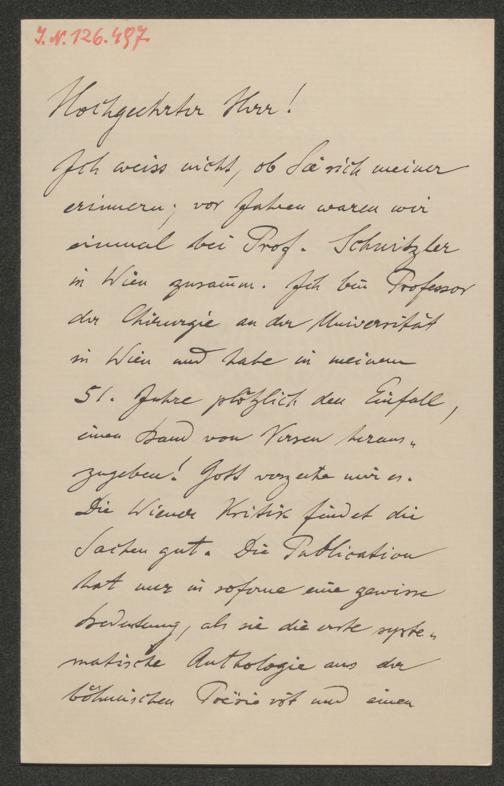 J.N. 126.497
Hochgeehrter Herr!
Ich weiss nicht, ob Sie sich meiner
erinnern; vor Jahren waren wir
einmal bei Prof. Schnitzler
in Wien zusam̄en. Ich bin Professor
der Chirurgie an der Universität
in Wien und habe in meinem
51. Jahre plötzlich den Einfall,
einen Band von Versen heraus-
zugeben! Gott verzeihe mir es.
Die Wiener Kritik findet die
Sachen gut. Die Publication
hat nur in soferne eine gewisse
Bedeutung, als sie die erste syste-
matische Anthologie aus der
böhmischen Poësie ist und einen